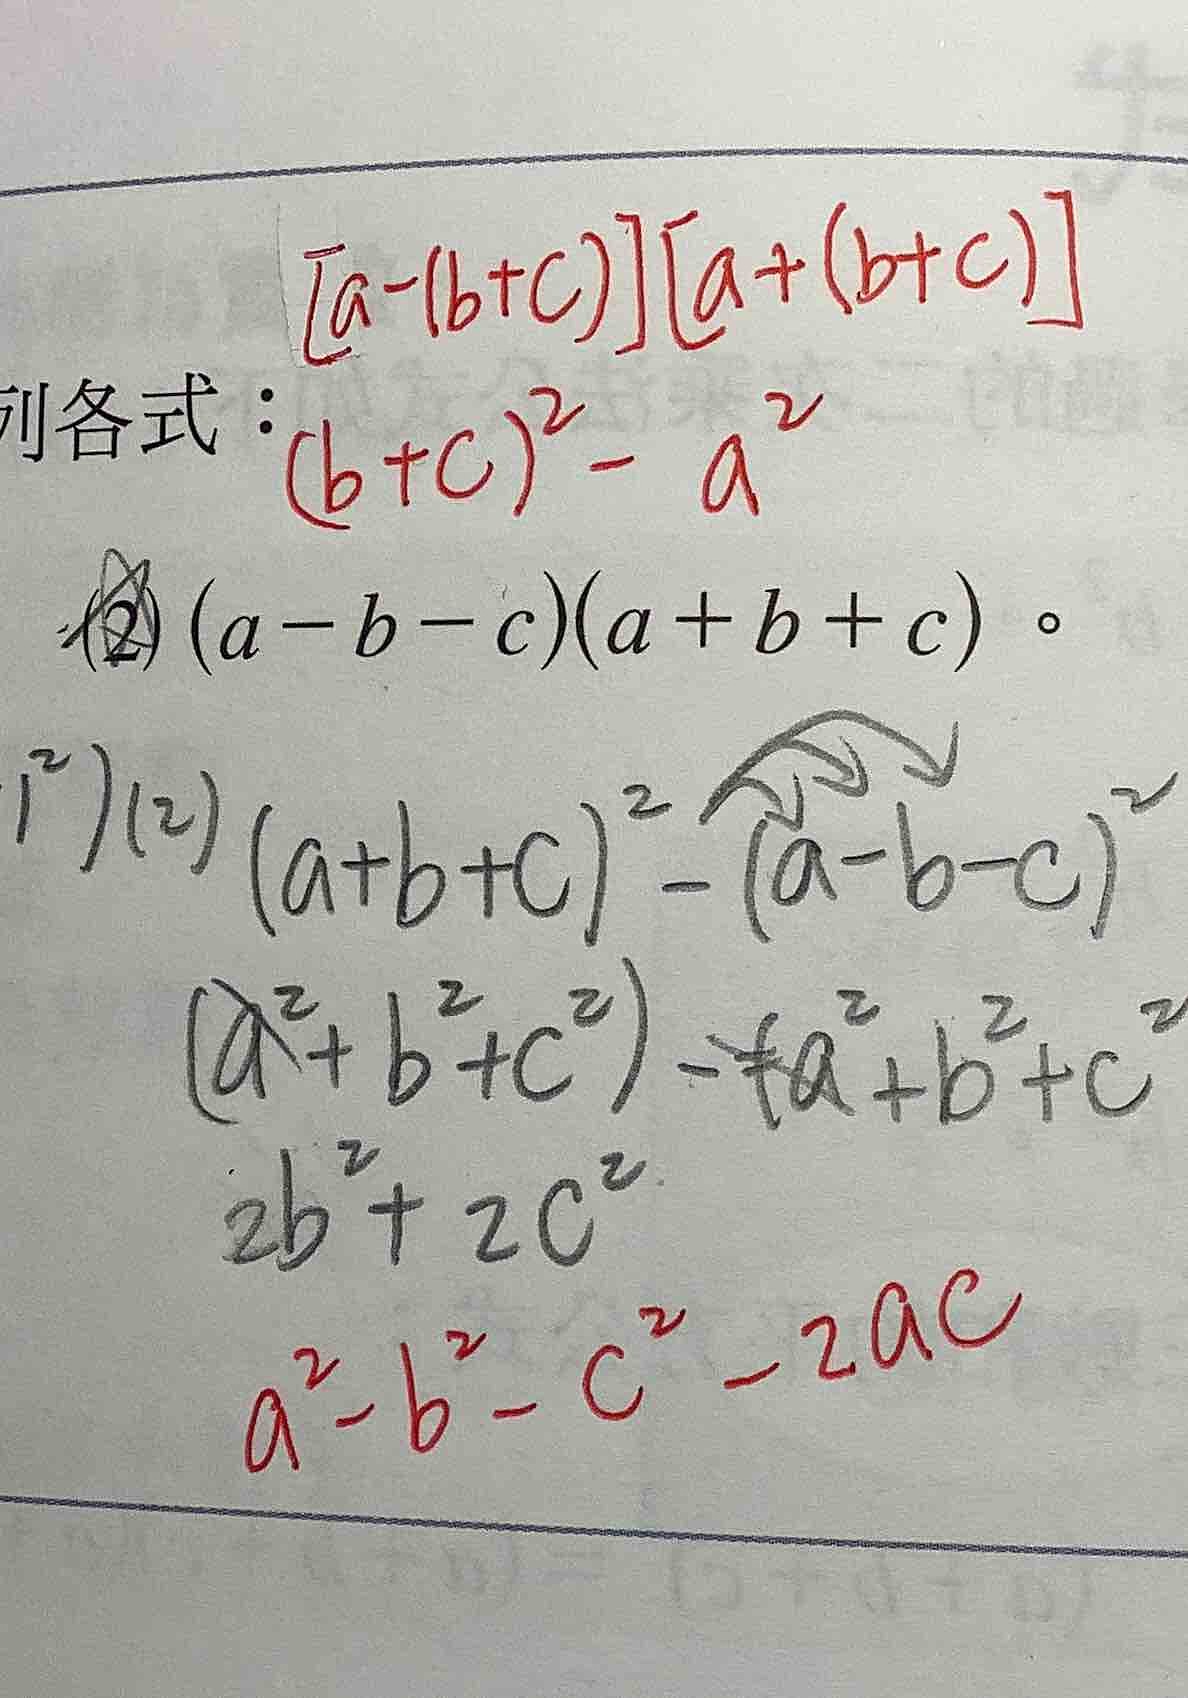 [a-(b+c)][a+(b+c)]
列各式：
(b+c)² - a²
(2) (a－b－c)(a＋b＋c)。
1²)(2) (a+b+c)² - (a-b-c)²
(a²+b²+c²) - (a²+b²+c²
2b²+2c²
a²-b²-c²-2ac